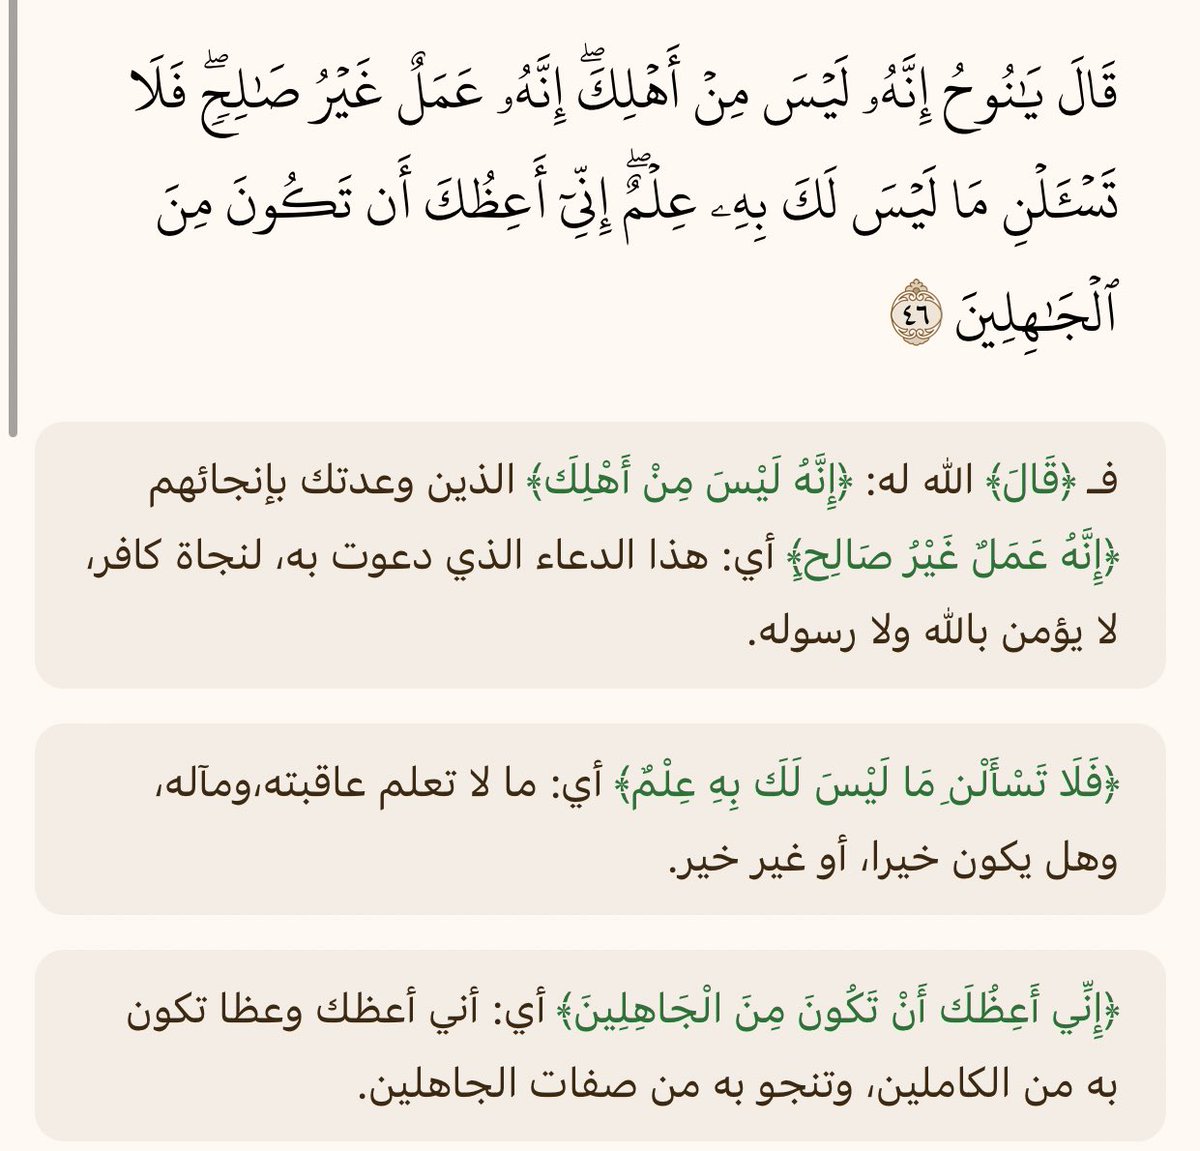 قَالَ يَـٰنُوحُ إِنَّهُۥ لَيۡسَ مِنۡ أَهۡلِكَۖ إِنَّهُۥ عَمَلٌ غَيۡرُ صَـٰلِحٖۖ فَلَا
تَسۡـَٔلۡنِ مَا لَيۡسَ لَكَ بِهِۦ عِلۡمٌۖ إِنِّيٓ أَعِظُكَ أَن تَكُونَ مِنَ
ٱلۡجَـٰهِلِينَ ٤٦
فـ ﴿قَالَ﴾ الله له: ﴿إِنَّهُ لَيْسَ مِنْ أَهْلِكَ﴾ الذين وعدتك بإنجائهم
﴿إِنَّهُ عَمَلٌ غَيْرُ صَالِحٍ﴾ أي: هذا الدعاء الذي دعوت به، لنجاة كافر،
لا يؤمن بالله ولا رسوله.
﴿فَلَا تَسْأَلْنِ مَا لَيْسَ لَكَ بِهِ عِلْمٌ﴾ أي: ما لا تعلم عاقبته،ومآله،
وهل يكون خيرا، أو غير خير.
﴿إِنِّي أَعِظُكَ أَنْ تَكُونَ مِنَ الْجَاهِلِينَ﴾ أي: أني أعظك وعظا تكون
به من الكاملين، وتنجو به من صفات الجاهلين.